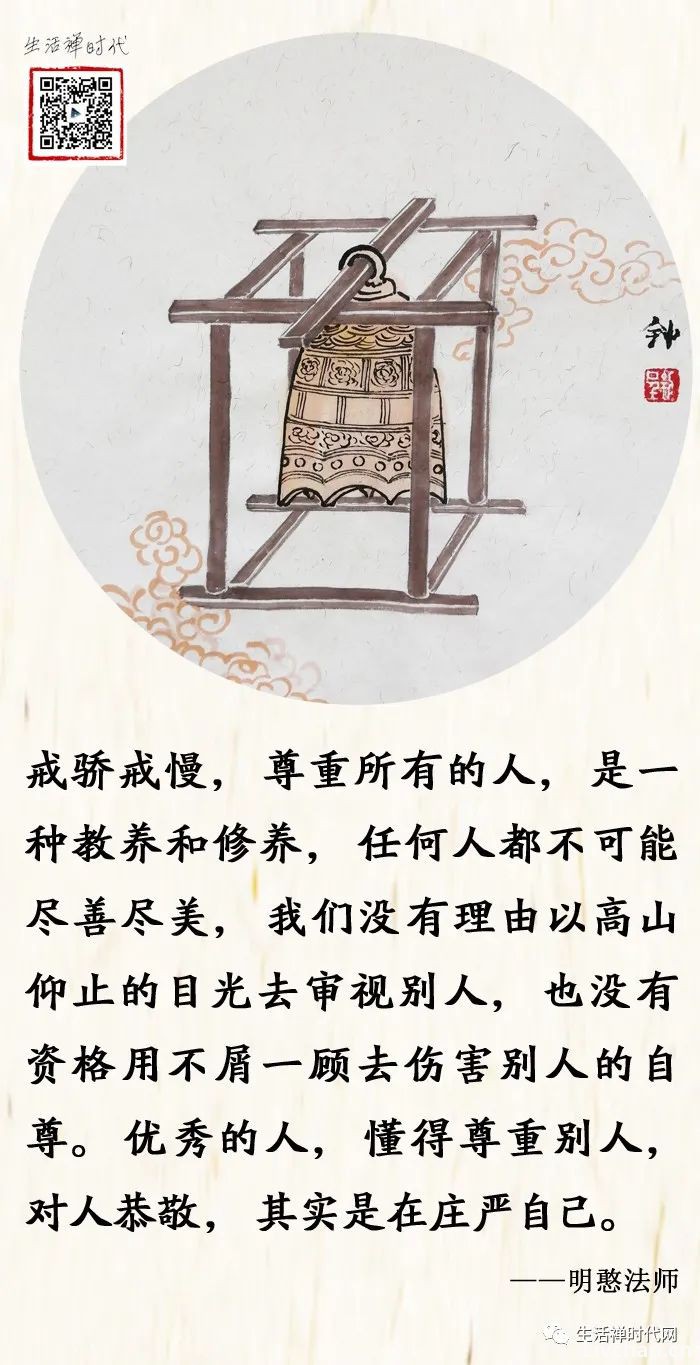 生活禅时代
钟
戒骄戒慢，尊重所有的人，是一
种教养和修养，任何人都不可能
尽善尽美，我们没有理由以高山
仰止的目光去审视别人，也没有
资格用不屑一顾去伤害别人的自
尊。优秀的人，懂得尊重别人，
对人恭敬，其实是在庄严自己。
——明憨法师
生活禅时代网